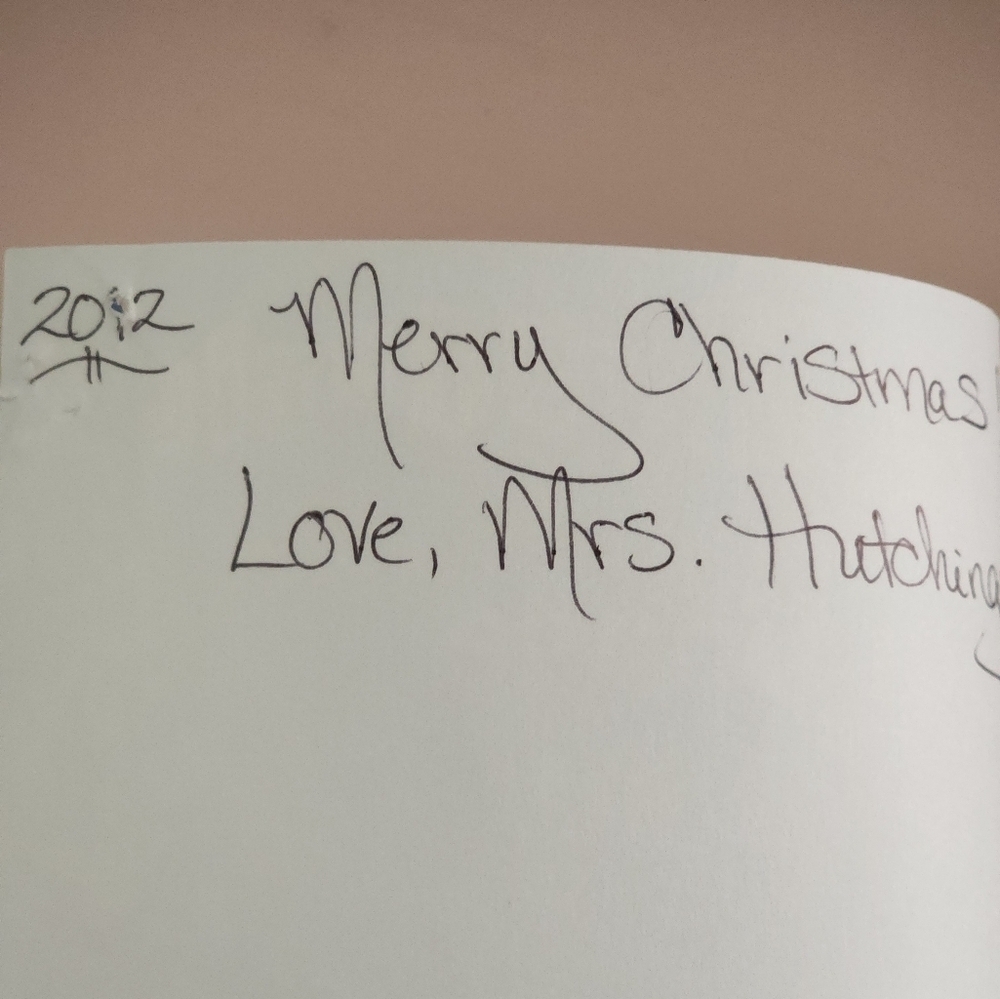 2012 Merry Christmas
Love, Mrs. Hutching